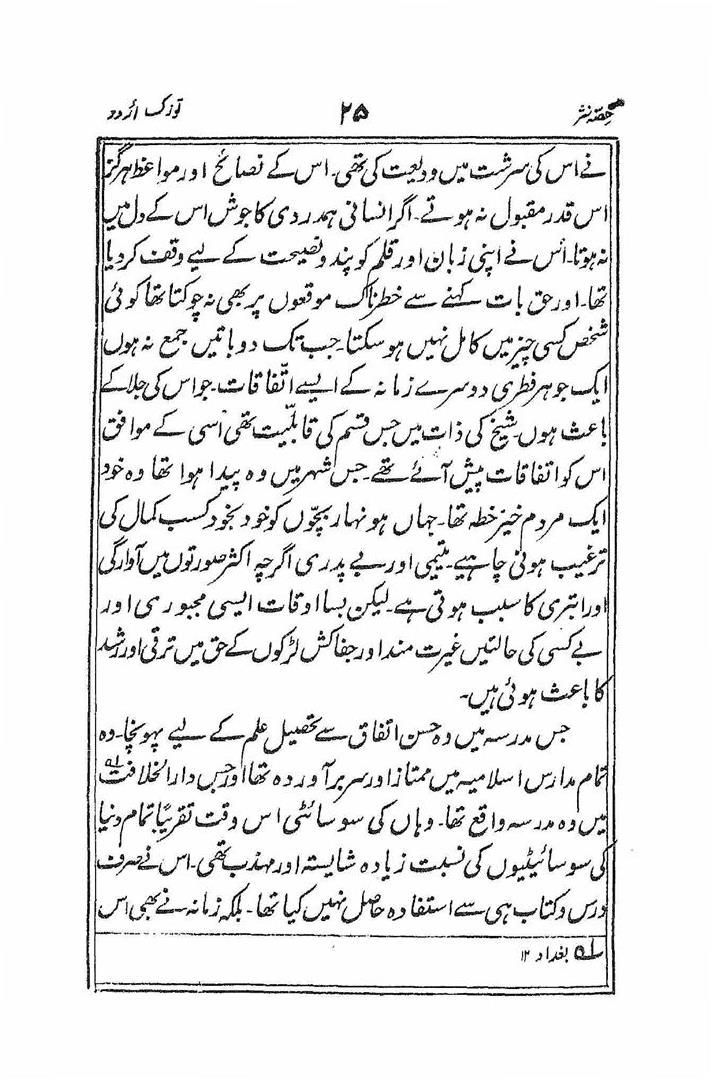 حصۂ نثر ۲۵ توزک اُردو
نے اس کی سرشت میں ودیعت کی تھی۔ اس کے نصائح اور مواعظ ہرگز
اس قدر مقبول نہ ہوتے۔ اگر انسانی ہمدردی کا جوش اس کے دل میں
نہ ہوتا۔ اُس نے اپنی زبان اور قلم کو پند و نصیحت کے لیے وقف کر دیا
تھا۔ اور حق بات کہنے سے خطرناک موقعوں پر بھی نہ چوکتا تھا کوئی
شخص کسی چیز میں کامل نہیں ہو سکتا۔ جب تک دو باتیں جمع نہ ہوں
ایک جوہر فطری دوسرے زمانہ کے ایسے اتّفاقات۔ جو اس کی جلا کے
باعث ہوں۔ شیخ کی ذات میں جس قسم کی قابلیّت تھی اسی کے موافق
اس کو اتفاقات پیش آئے تھے۔ جس شہر میں وہ پیدا ہوا تھا وہ خود
ایک مردم خیز خطہ تھا۔ جہاں ہونہار بچّوں کو خود بخود کسب کمال کی
ترغیب ہونی چاہیے۔ یتیمی اور بے پدری اگرچہ اکثر صورتوں میں آوارگی
اور ابتری کا سبب ہوتی ہے۔ لیکن بسا اوقات ایسی مجبوری اور
بے کسی کی حالتیں غیرت مند اور جفاکش لڑکوں کے حق میں ترقی اور رشد
کا باعث ہوئی ہیں۔
جس مدرسہ میں وہ حسن اتفاق سے تحصیل علم کے لیے پہونچا۔ وہ
تمام مدارس اسلامیہ میں ممتاز اور سربرآوردہ تھا اور جس دارالخلافت ؎۱
میں وہ مدرسہ واقع تھا۔ وہاں کی سوسائٹی اس وقت تقریبًا تمام دنیا
کی سوسائیٹیوں کی نسبت زیادہ شایستہ اور مہذب تھی۔ اس نے صرف
درس و کتاب ہی سے استفادہ حاصل نہیں کیا تھا۔ بلکہ زمانہ نے بھی اس
؎۱ بغداد ۱۲